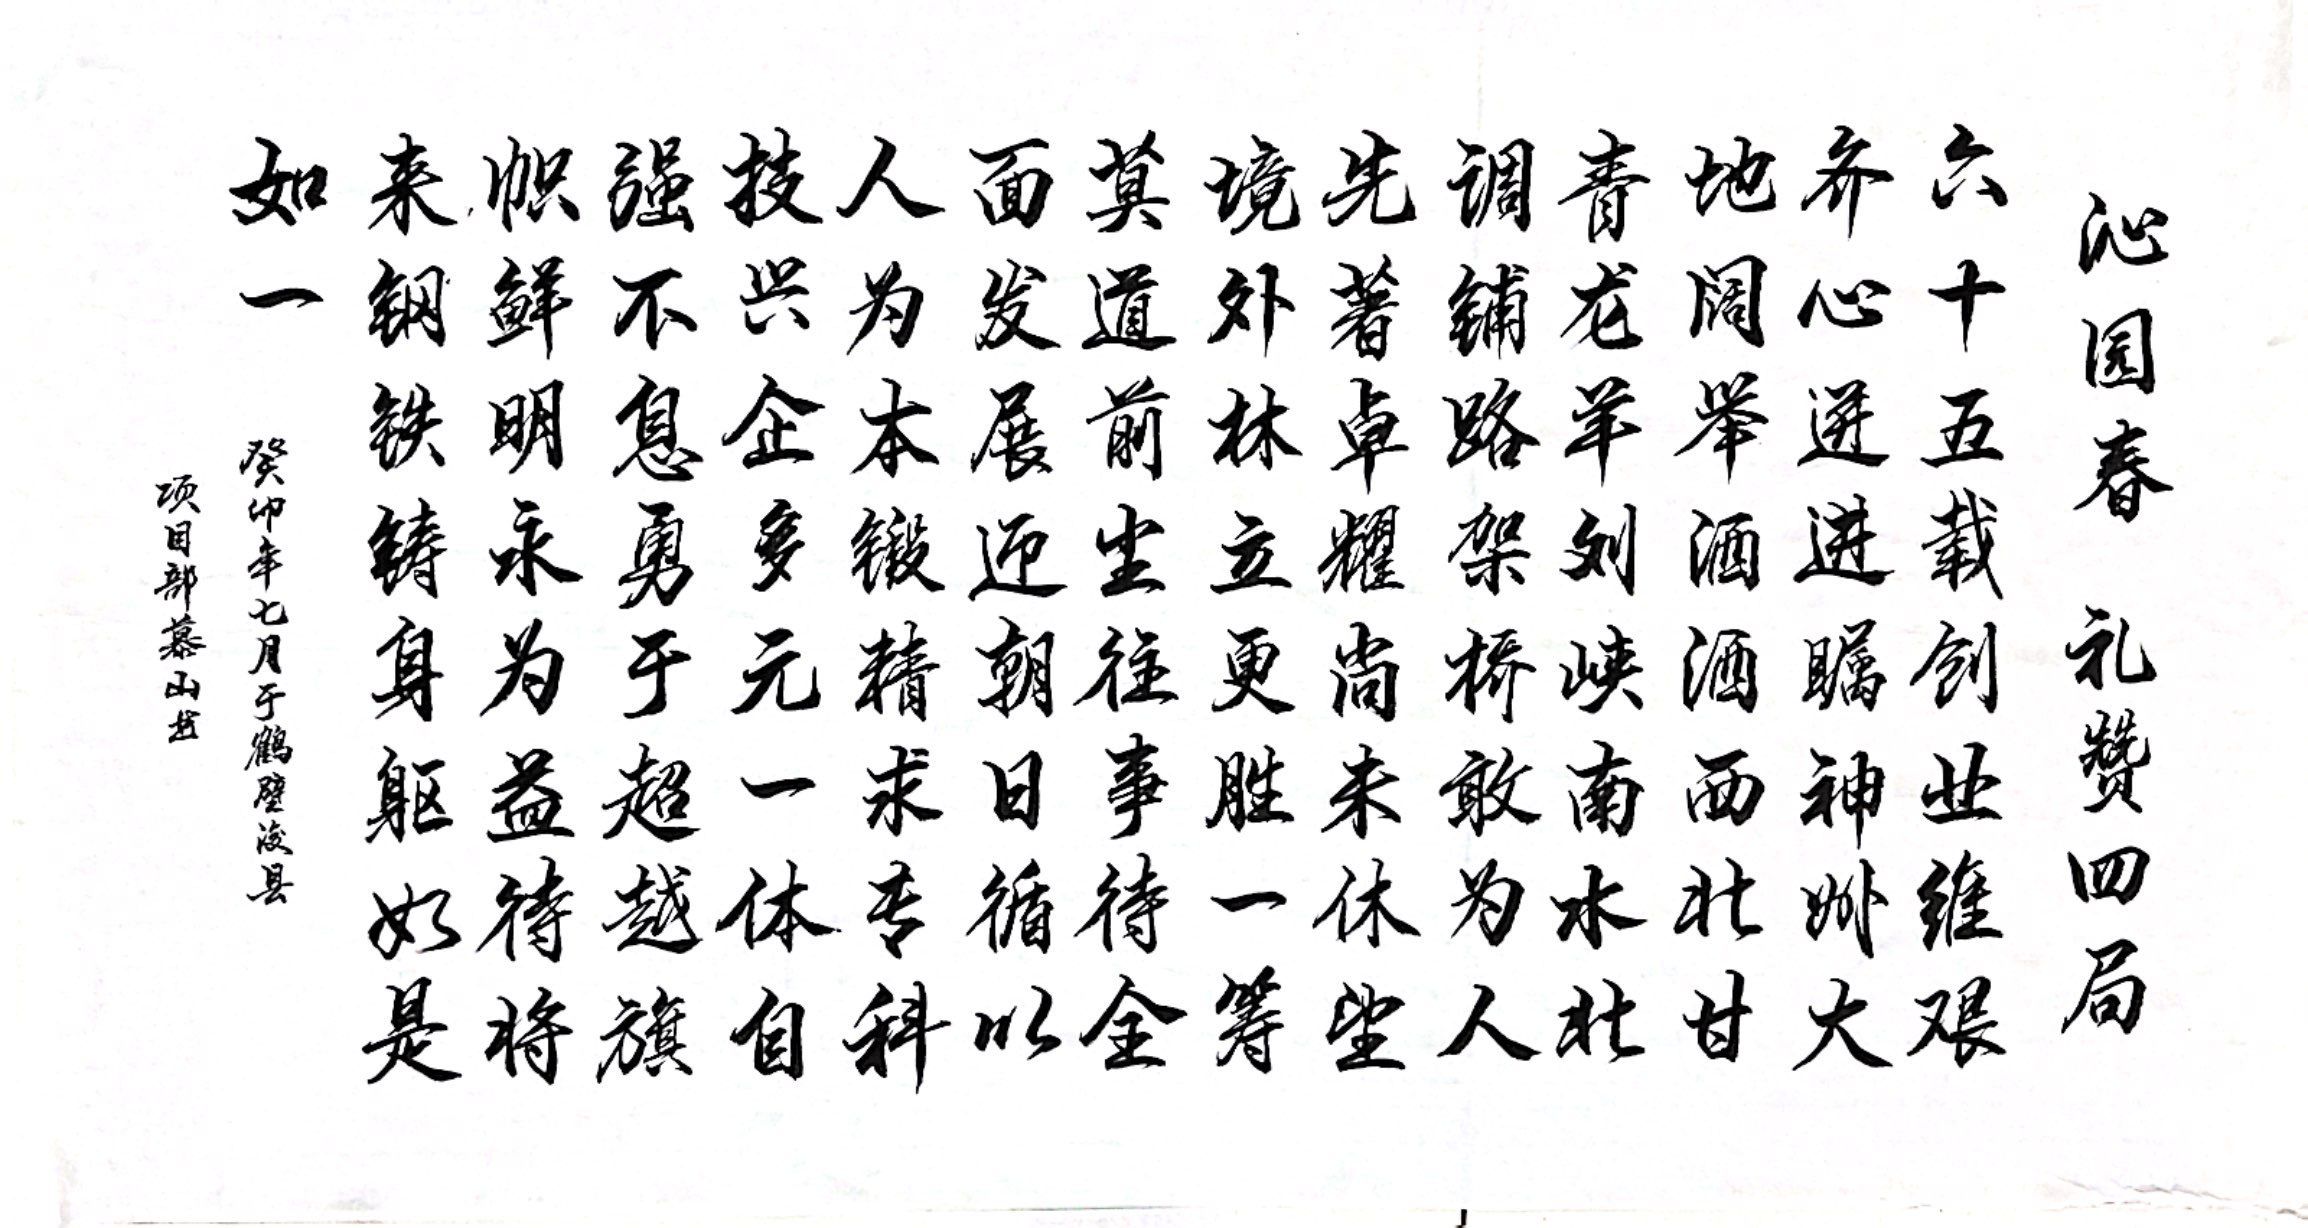 沁园春 礼赞四局
六十五载创业维艰
齐心迸进瞩神州大
地阔举酒酒西北甘
青龙羊刘峡南水北
调铺路架桥敢为人
先著卓耀尚未休望
境外林立更胜一筹
莫道前尘往事待全
面发展迎朝日循以
人为本锻精求专科
技兴企多元一体自
强不息勇于超越旗
帜鲜明永为益待将
来钢铁铸身躯如是
如一
癸卯年七月于鹤壁浚县
项目部慕山书